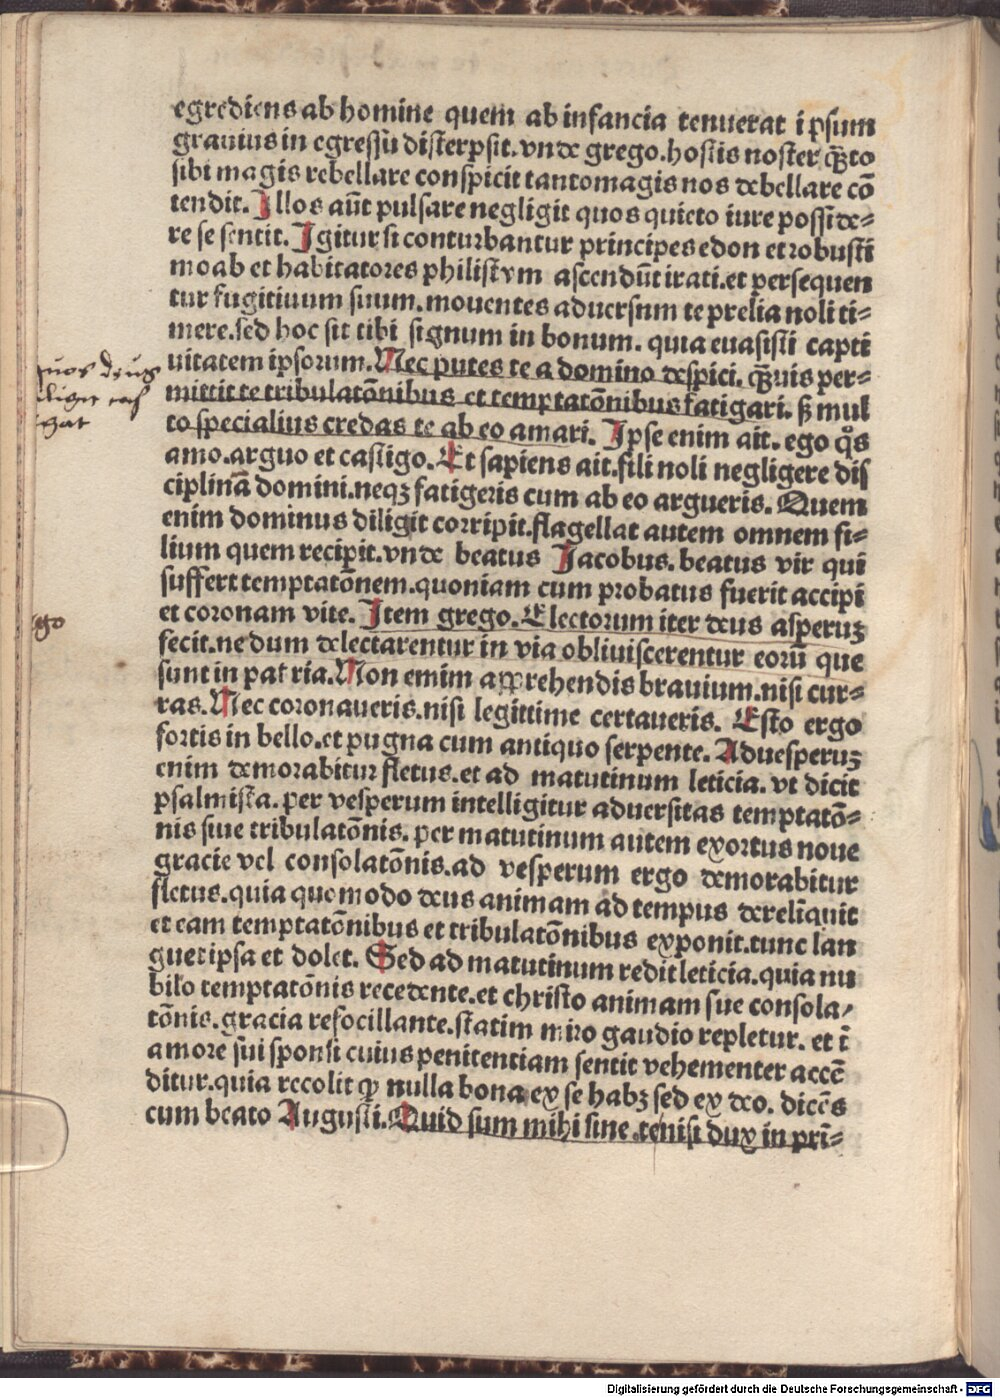 egrediens ab homine quem ab infancia tenuerat ipsum
grauius in egressu disterpsit. vnde grego. hostis noster q̃̃to
sibi magis rebellare conspicit tantomagis nos debellare cō
tendit. Illos aūt pulsare negligit quos quieto iure posside⸗
re se sentit. Igitur si conturbantur principes edon et robusti
moab et habitatores philistym ascendūt irati. et persequen
tur fugitiuum suum. mouentes aduersum te prelia noli ti⸗
mere. sed hoc sit tibi signum in bonum. quia euasisti capti
uitatem ipsorum. Nec putes te a domino despici. q̃̃uis per⸗
mittit te tribulatōnibus et temptatōnibus fatigari. ẜ mul
to specialius credas te ab eo amari. Ipse enim ait. ego qͦs
amo. arguo et castigo. Et sapiens ait. fili noli negligere dis
ciplinā domini. neqꝫ fatigeris cum ab eo argueris. Quem
enim dominus diligit corripit. flagellat autem omnem fi⸗
lium quem recipit. vnde beatus Jacobus. beatus vir qui
suffert temptatōnem. quoniam cum probatus fuerit accipi
et coronam vite. Item grego. Electorum iter deus asperuꝫ
fecit. ne dum delectarentur in via obliuiscerentur eorū que
sunt in patria. Non enim apprehendis brauium. nisi cur⸗
ras. Nec coronaueris. nisi legittime certaueris. Esto ergo
fortis in bello. et pugna cum antiquo serpente. Aduesperuꝫ
enim demorabitur fletus. et ad matutinum leticia. vt dicit
psalmista. per vesperum intelligitur aduersitas temptatō⸗
nis siue tribulatōnis. per matutinum autem exortus noue
gracie vel consolatōnis. ad vesperum ergo demorabitur
fletus. quia quomodo deus animam ad tempus derelīquit
et eam temptatōnibus et tribulatōnibus exponit. tunc lan
guet ipsa et dolet. Sed ad matutinum redit leticia. quia nu
bilo temptatōnis recedente. et christo animam sue consola/
tōnis. gracia refocillante. statim miro gaudio repletur. et ī
amore sui sponsi cuius penitentiam sentit vehementer accē
ditur. quia recolit ꝙ nulla bona ex se habꝫ sed ex deo. dicēs
cum beato Augusti. Quid sum mihi sine te nisi dux in prī⸗
quos deus
diligit eos
gat
go
Digitalisierung gefördert durch die Deutsche Forschungsgemeinschaft - DFG